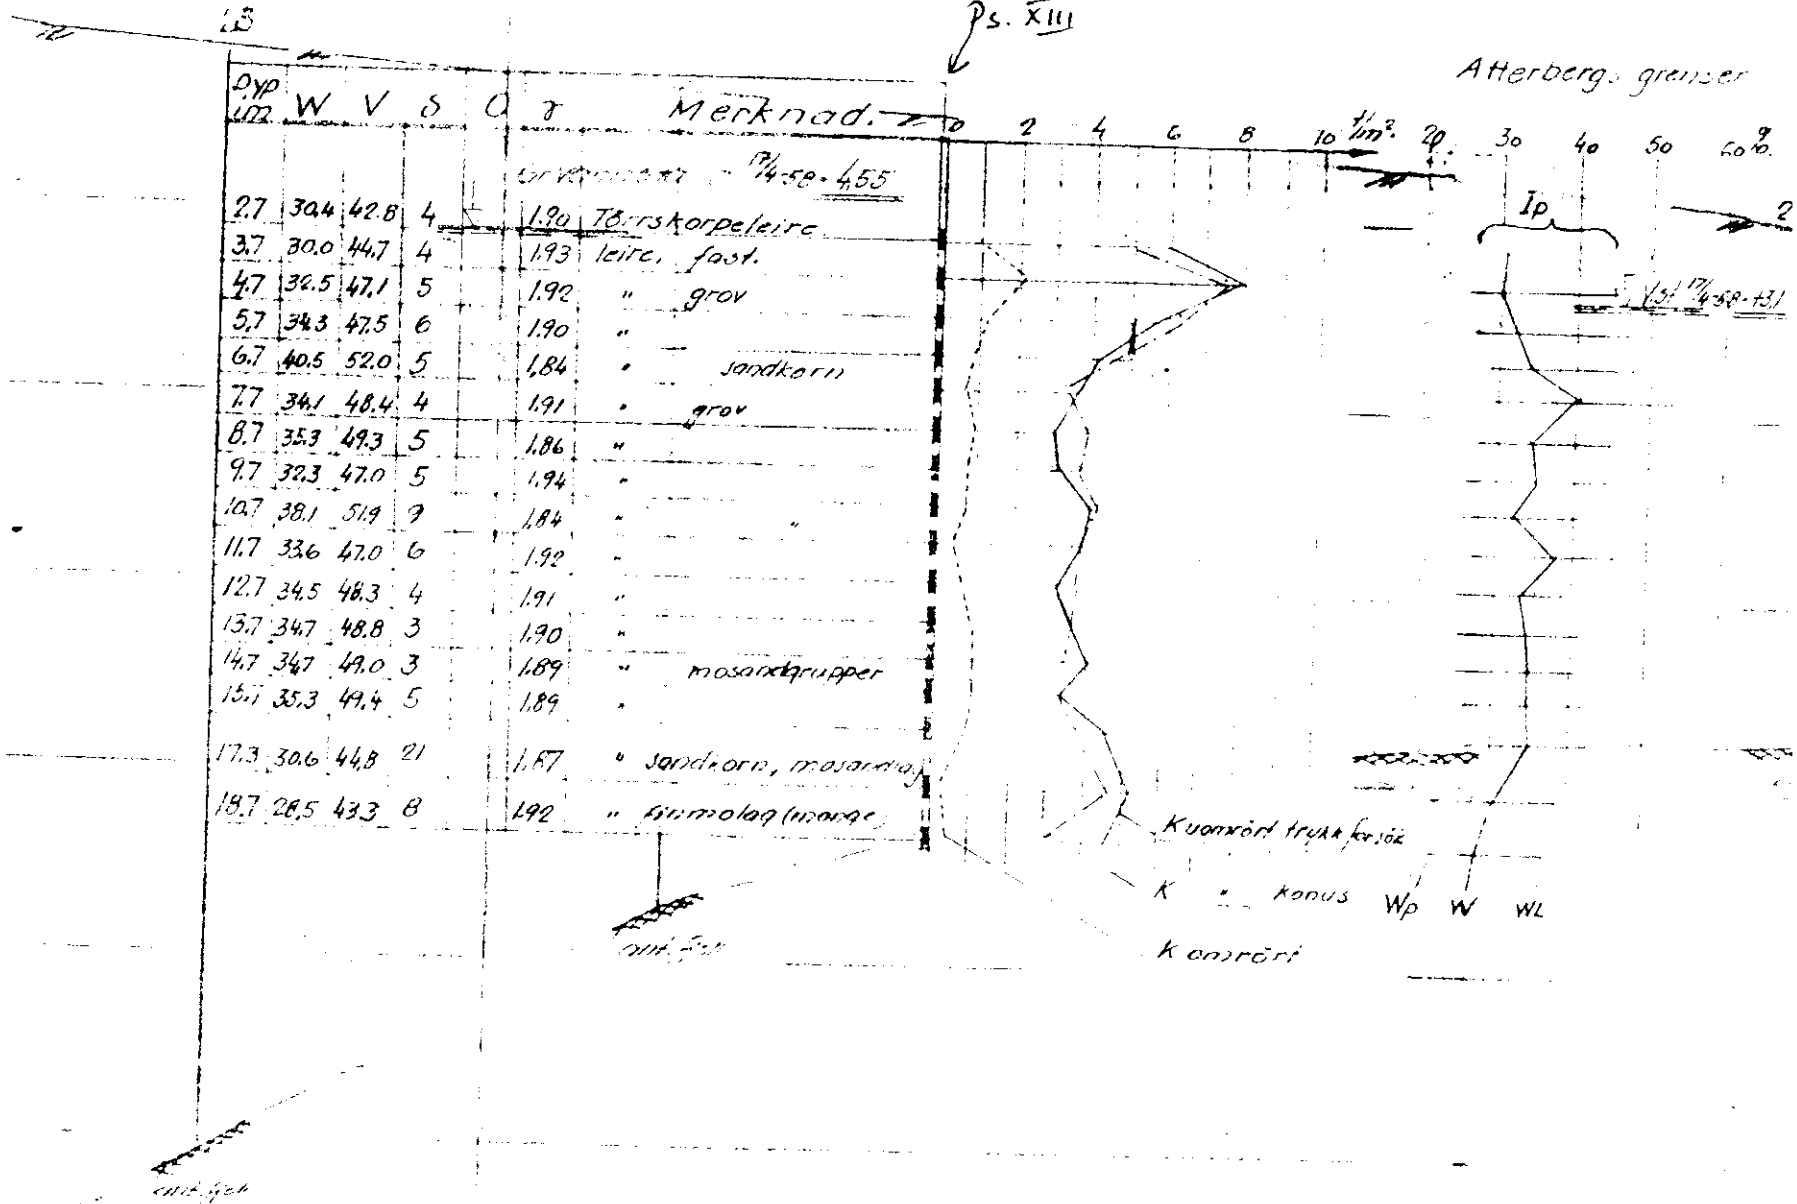 Ps. XIII
Atterbergs grenser
Dyp im W V δ O γ Merknad.
0 2 4 6 8 10 t/m². 20 30 40 50 60 %.
17/4-58 - 4,55
Ip
2.7 30.4 42.8 4 1.90 Törrskorpeleire
3.7 30.0 44.7 4 1.93 leire, fast.
4.7 32.5 47.1 5 1.92 " grov
17/4-58
5.7 34.3 47.5 6 1.90 "
6.7 40.5 52.0 5 1.84 " sandkorn
7.7 34.1 48.4 4 1.91 " grov
8.7 35.3 49.3 5 1.86 "
9.7 32.3 47.0 5 1.94 "
10.7 38.1 51.9 9 1.84 " "
11.7 33.6 47.0 6 1.92 "
12.7 34.5 48.3 4 1.91 "
13.7 34.7 48.8 3 1.90 "
14.7 34.7 49.0 3 1.89 " mosandgrupper
15.7 35.3 49.4 5 1.89 "
17.3 30.6 44.8 21 " sandkorn, mosandlag
18.7 28.5 43.3 8 1.92 " finmolag
Kuomrört trykkforsök
K " konus
Wp W WL
K omrört
ant. fjell
ant. fjell